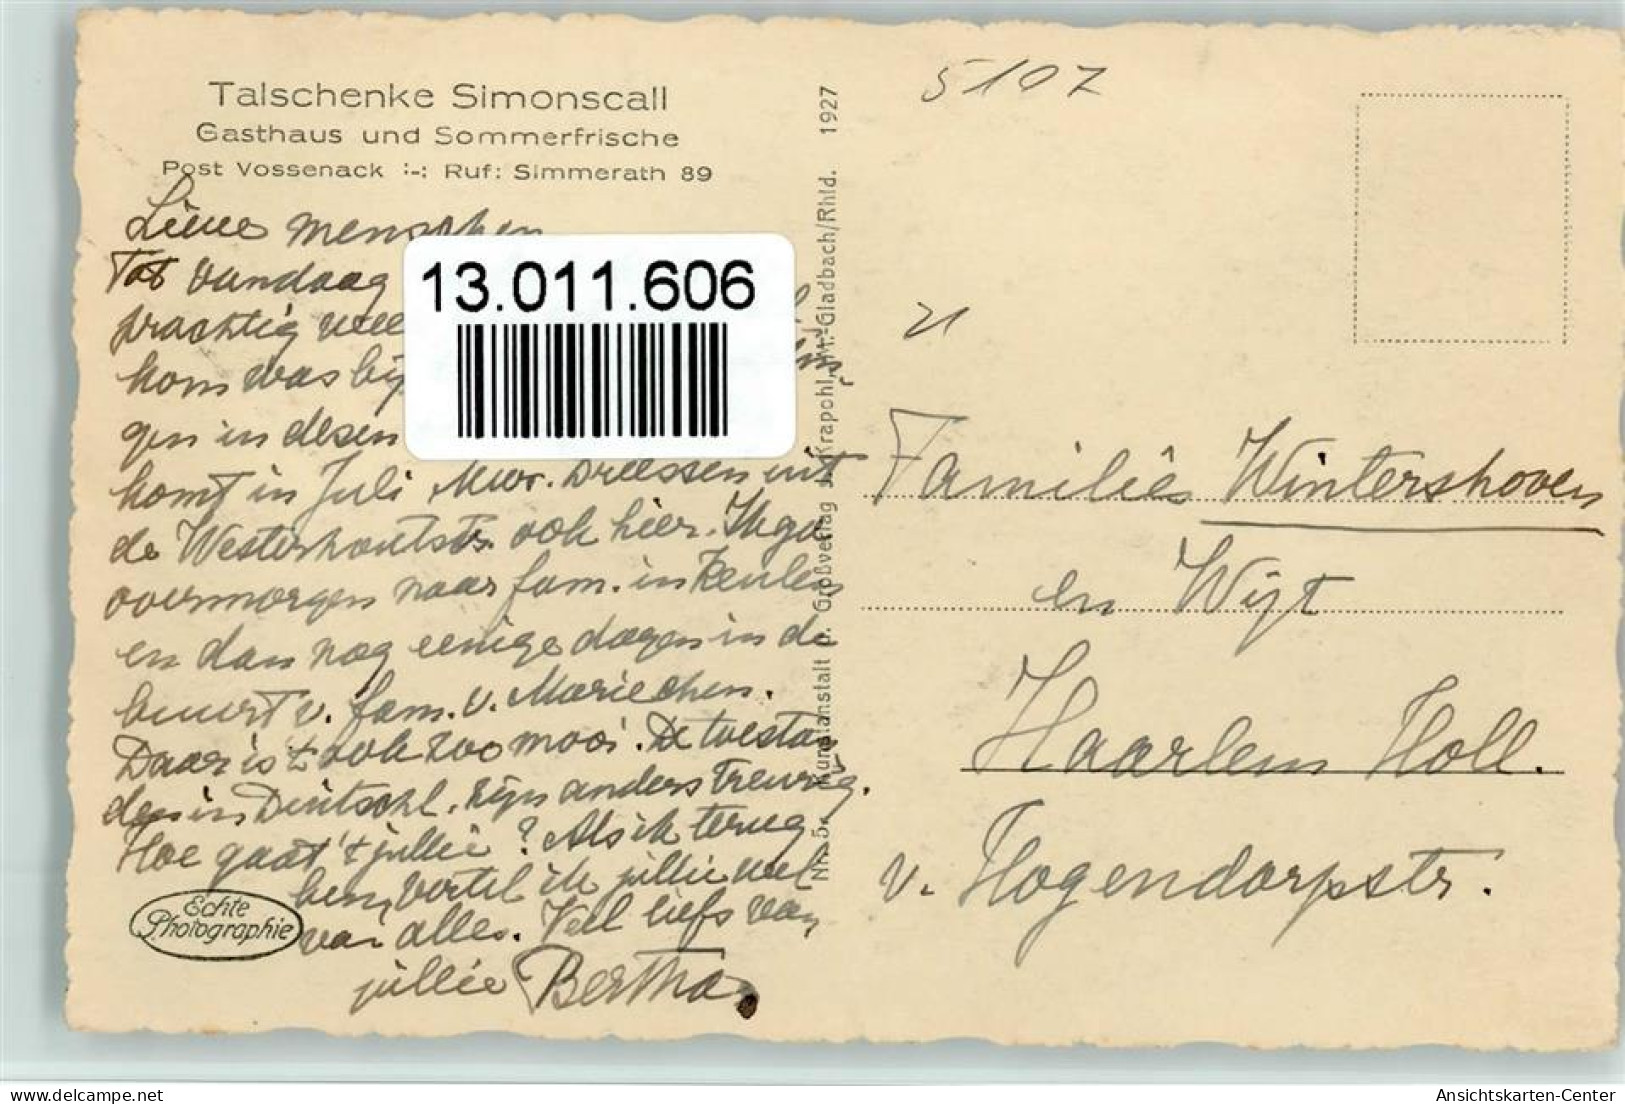 Talschenke Simonscall
Gasthaus und Sommerfrische
Post Vossenack :-: Ruf: Simmerath 89
Lieve menschen
Tot vandaag
prachtig weer
kom was bij
gen in dezen
komt in Juli Mevr. Driessen uit
de Westerhoutstr. ook hier. Ik ga
overmorgen naar fam. in Keulen
en dan nog eenige dagen in de
buurt v. fam. v. Mariechen.
Daar is 't ook zoo mooi. De toestan
den in Deutschl. zijn anders treurig.
Hoe gaat 't jullie? Als ik terug
ben, vertel ik jullie wel
van alles. Veel liefs van
jullie Bertha.
Echte
Photographie
13.011.606
Krapohl, M.-Gladbach/Rhld. 1927
5107
21
Familie Wintershoven
en Wijt
Haarlem Holl.
v. Hogendorpstr.
delcampe.net
Ansichtskarten-Center